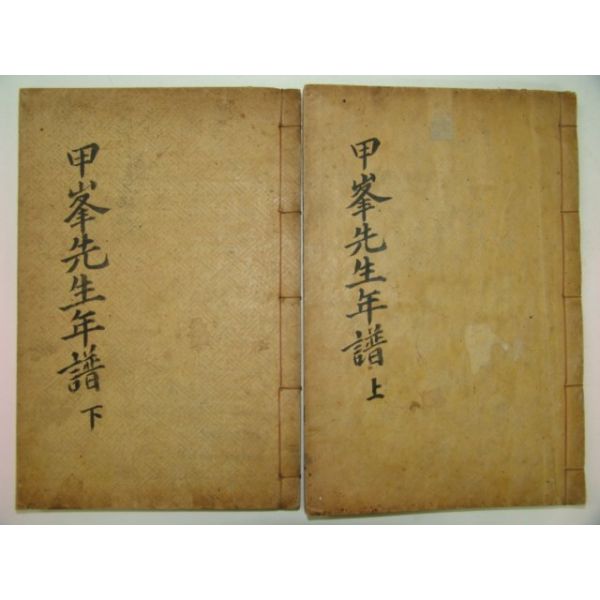 甲峯先生年譜 上
甲峯先生年譜 下